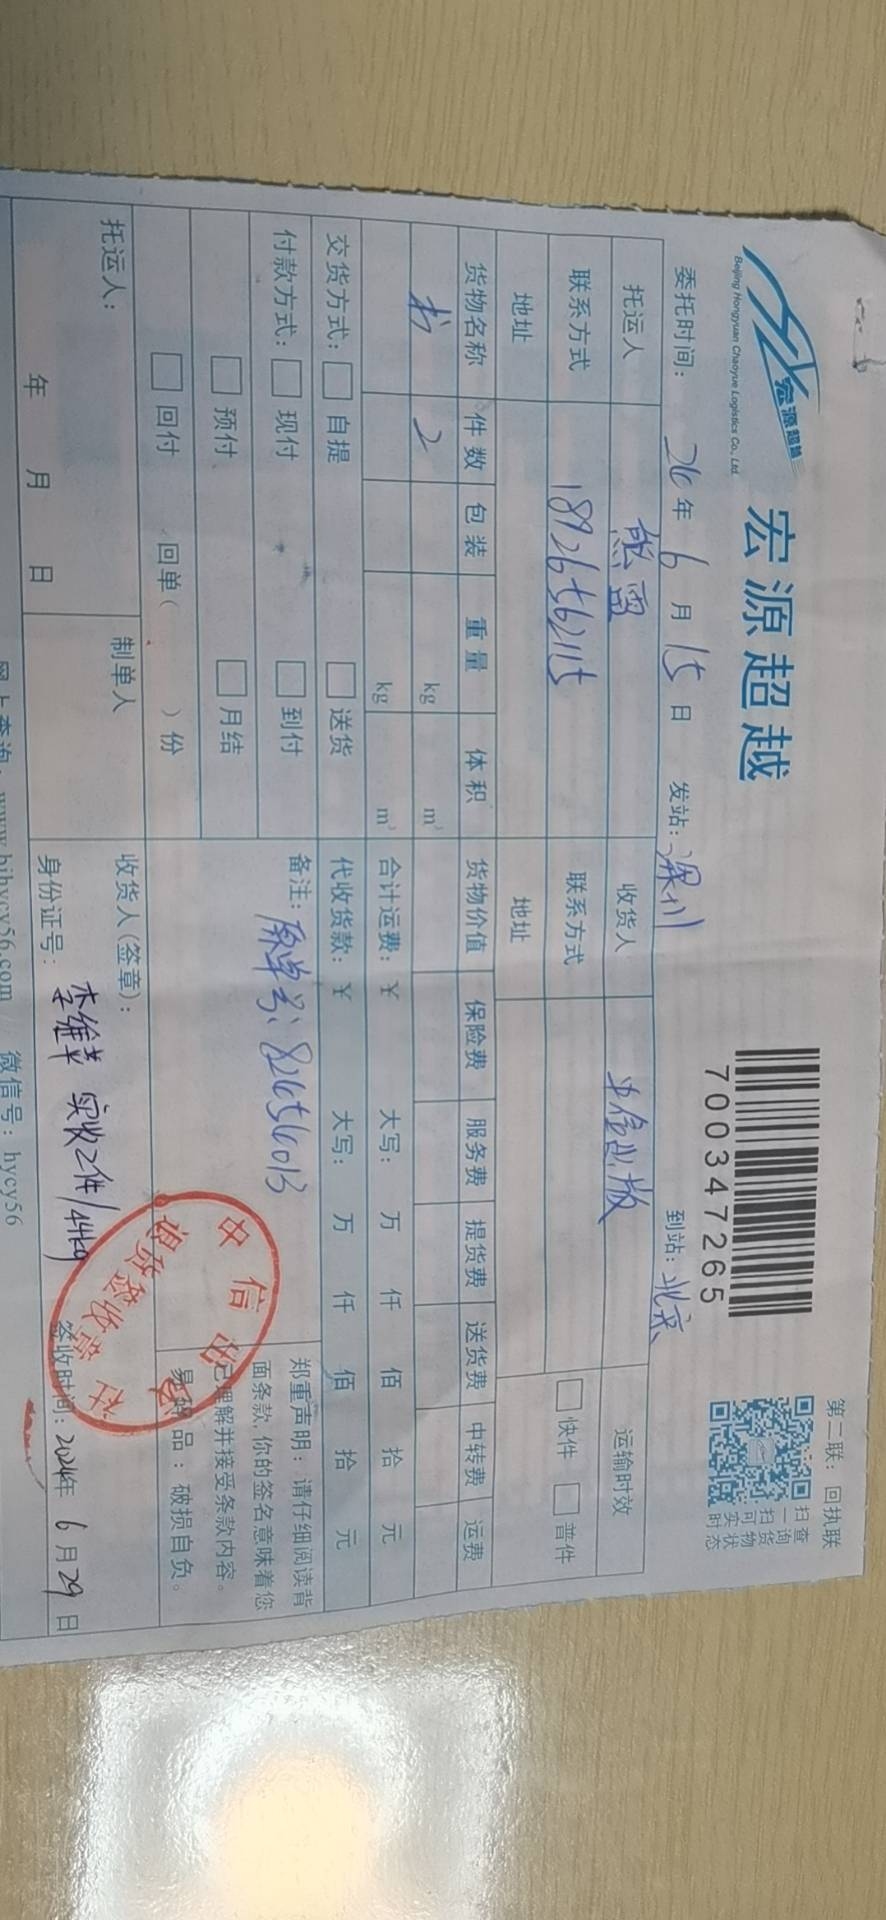 第二联：回执联
宏源超越
Beijing Hongyuan Chaoyue Logistics Co., Ltd.
宏源超越
70034 7265
扫一扫可实时
查询货物状态
委托时间：26年6月15日 发站：深圳 到站：北京
托运人 熊雷 收货人 中信出版 运输时效
联系方式 18926562115 联系方式 □快件 □普件
地址 地址
货物名称 件数 包装 重量 体积 货物价值 保险费 服务费 提货费 送货费 中转费 运费
书 2 kg m³
kg m³ 合计运费：¥ 大写： 万 仟 佰 拾 元
交货方式：□自提 □送货 代收货款：¥ 大写： 万 仟 佰 拾 元
付款方式：□现付 □到付 备注：原单号：826656013
□预付 □月结
□回付 回单（ ）份
郑重声明：请仔细阅读背
面条款，你的签名意味着您
已理解并接受条款内容。
易碎品：破损自负。
托运人： 制单人 收货人（签章）：
年 月 日 身份证号： 李维苹 实收2件/44kg 签收时间：2026年6月29日
中信出版社
网上查询：www.bjhycy56.com 微信号：hycy56